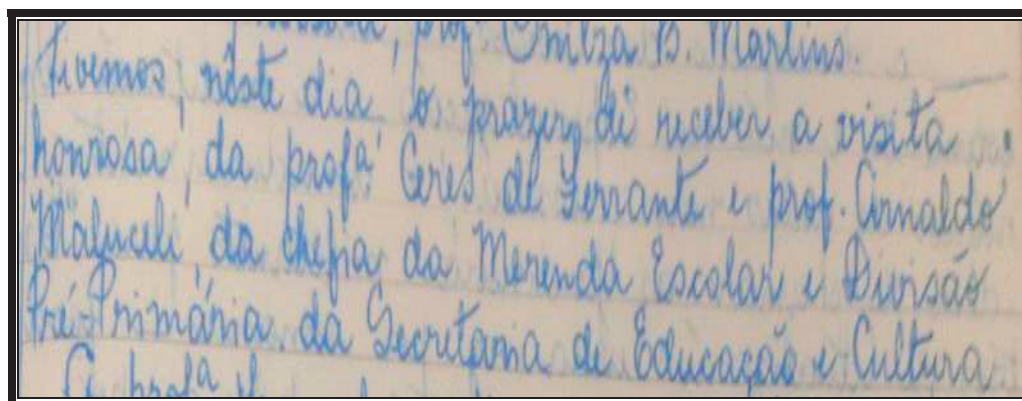 prof. Onilza B. Martins.
Tivemos, nêste dia o prazer, de receber a visita
honrosa, da profª Ceres de Ferrante e prof. Arnaldo
Maluceli da chefia da Merenda Escolar e Divisão
Pré-Primária da Secretaria de Educação e Cultura
A profª